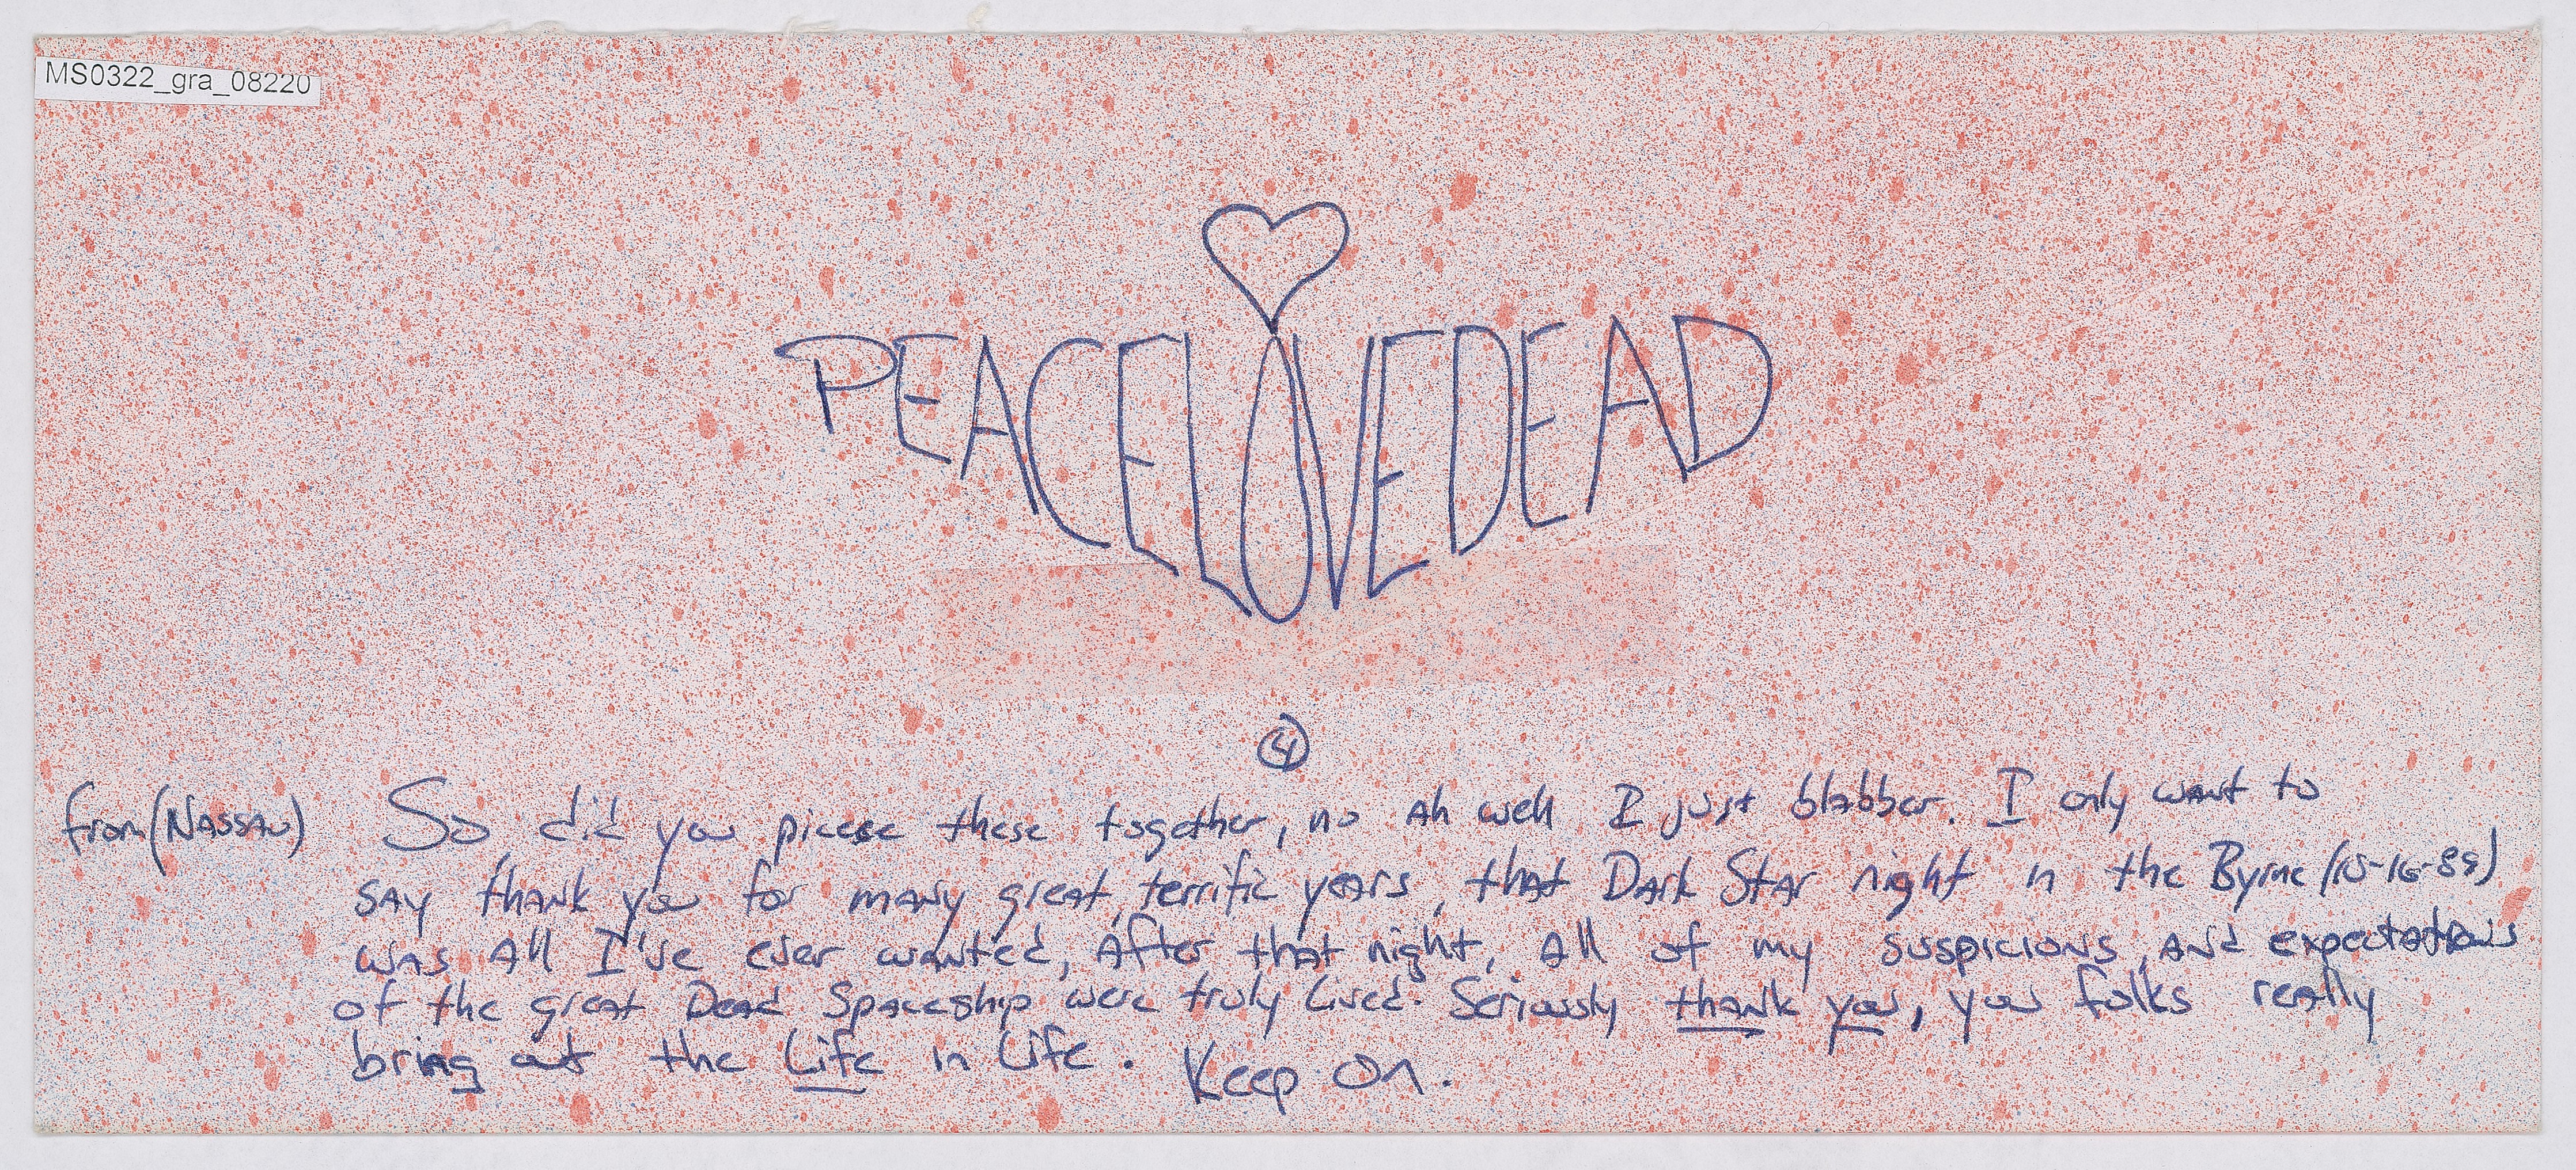 MS0322_gra_08220
PEACELOVEDEAD
④
from (NASSAU) So, did you piecese these together, no Ah well I just blabber. I only want to
say thank you for many great, terrific years, that Dark Star night in the Byrne (10-16-89)
was All I've ever wanted, After that night, All of my suspicions, And expectations
of the great Dead Spaceship were truly lived. Seriously thank you, you folks really
bring out the Life in Life. Keep On.